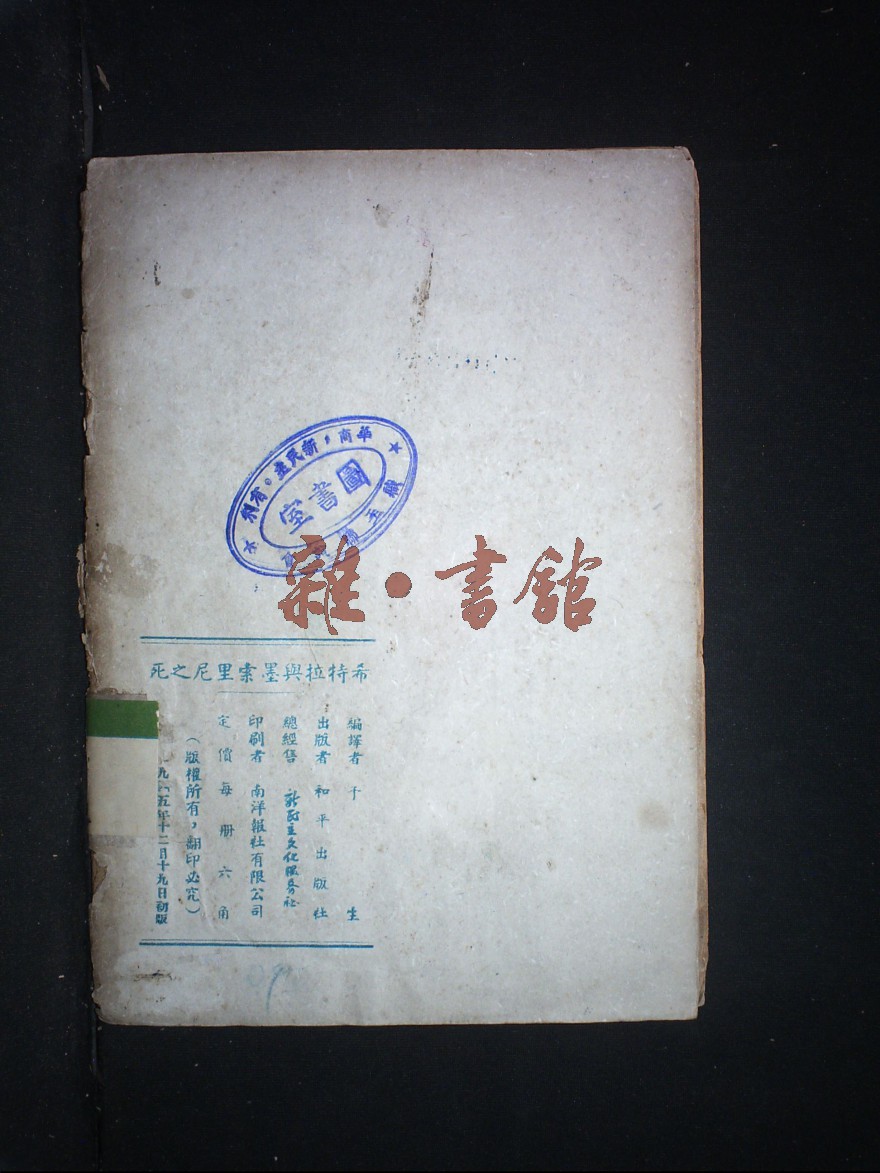 華商，新民
圖書室
雜·書館
希特拉與墨索里尼之死
編譯者 于生
出版者 和平出版社
總經售 新民主文化服務社
印刷者 南洋報社有限公司
定價每册六角
（版權所有，翻印必究）
五年十二月十九日初版